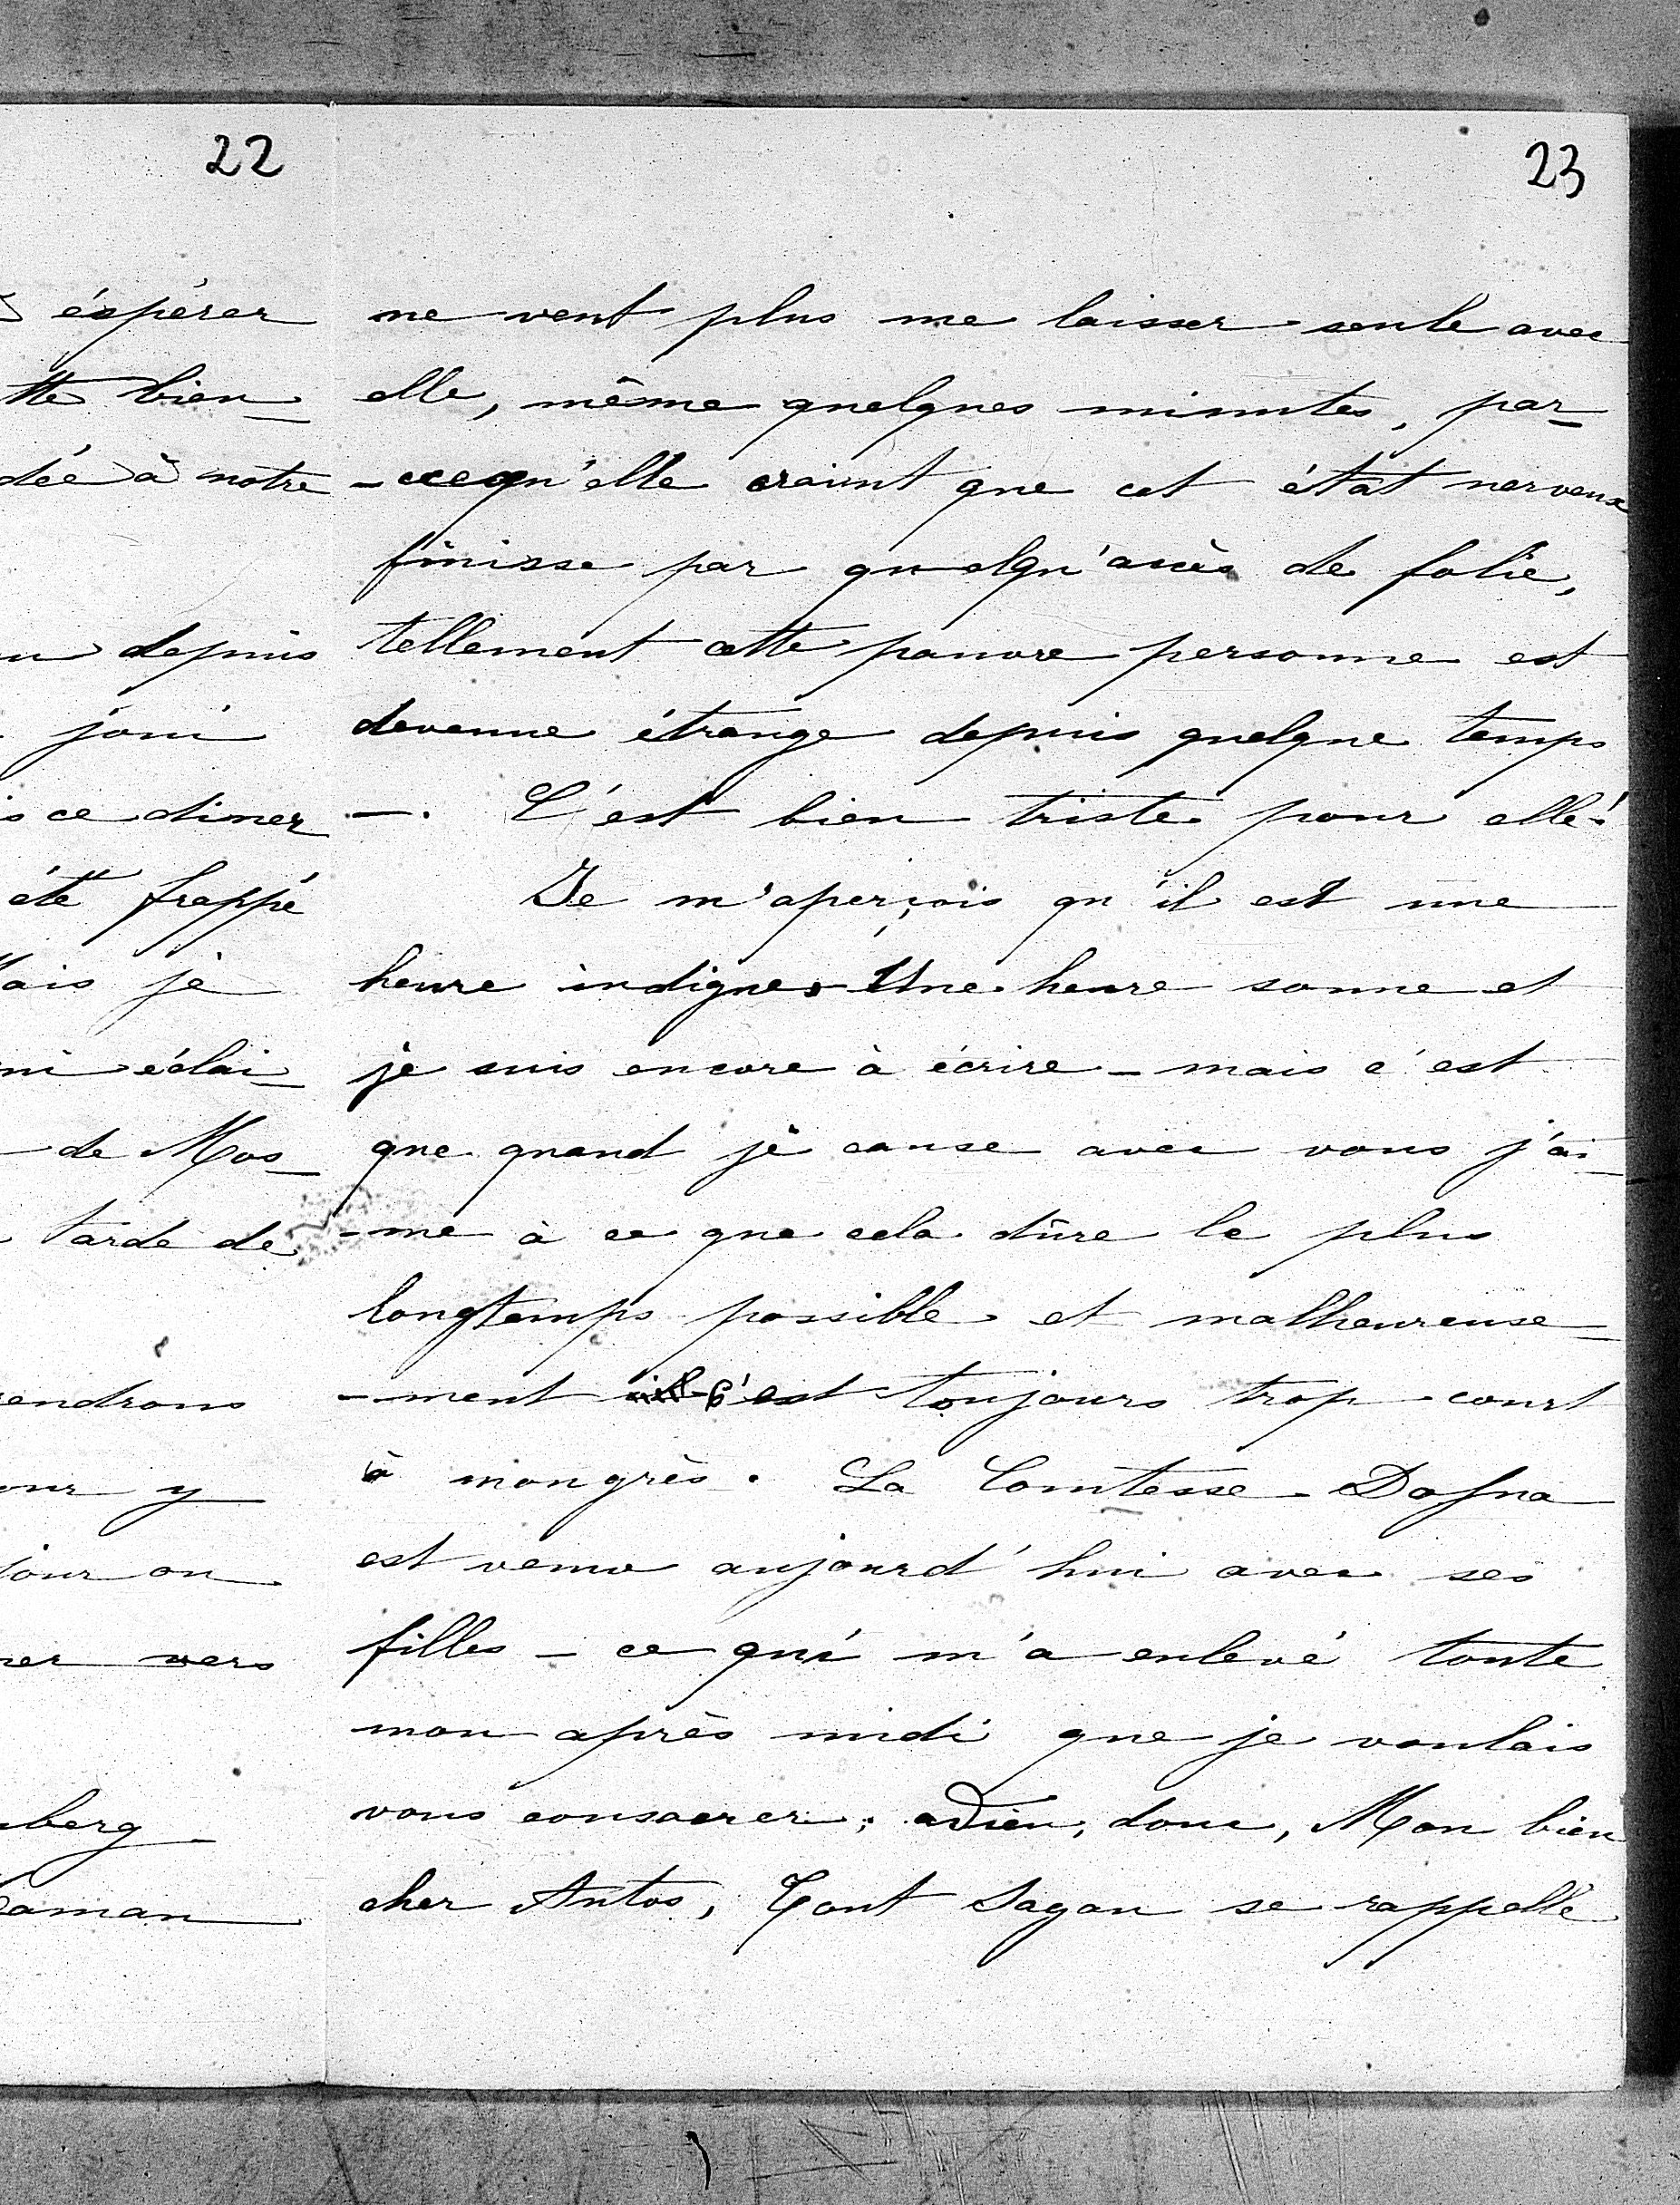 22
éspérer
tte bien-
dée à notre
depuis
joui
ce dîner
été frappé
ais je
ni éclai-
de Mos-
tarde de
endrons
our y
jour on
ner vers
berg
aman
23
ne veut plus me laisser seule avec
elle, même quelques minutes, par-
-cequ'elle craint que cet état nerveux
finisse par quelqu'accès de folie,
tellement cette pauvre personne est
devenue étrange depuis quelque temps
-. C'est bien triste pour elle!
Je m'aperçois qu'il est une
heure indigne, Une heure sonne et
je suis encore à écrire - mais c'est
que quand je cause avec vous j'ai-
-me à ce que cela dûre le plus
longtemps possible et malheureuse-
-ment c'est toujours trop court
à mon grès. La Comtesse
est venue aujourd'hui avec ses
filles - ce qui m'a enlevé toute
mon après midi que je voulais
vous consacrer; adieu, donc, Mon bien
cher Antos, Tout Sagan se rappelle